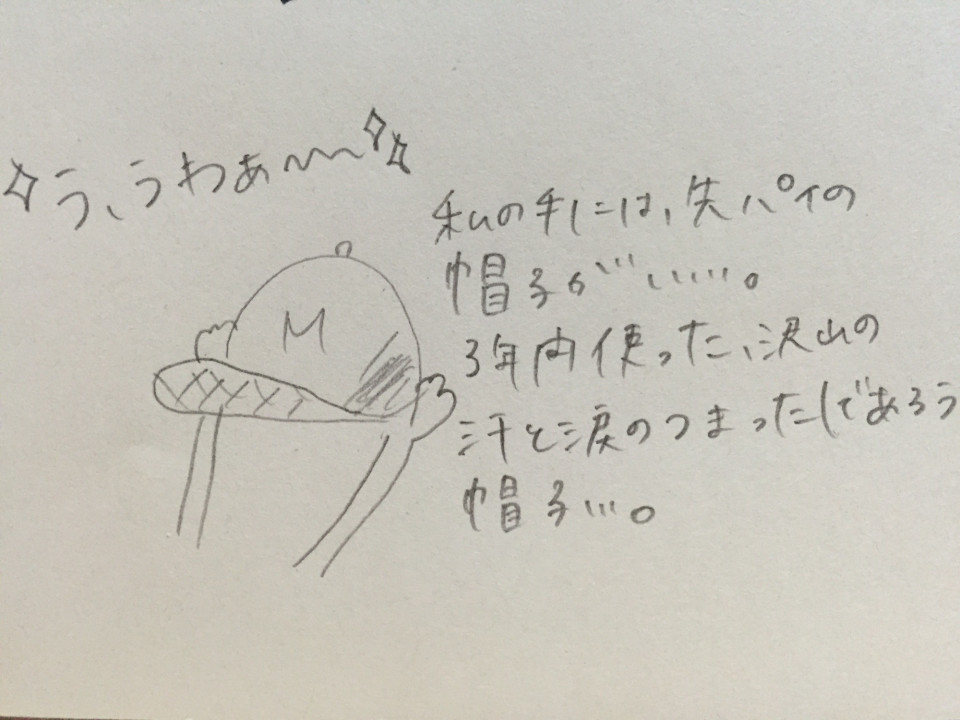 う、うわぁ〜〜
M
私の手には、先パイの
帽子が……。
3年内使った、沢山の
汗と涙のつまった(であろう
帽子…。